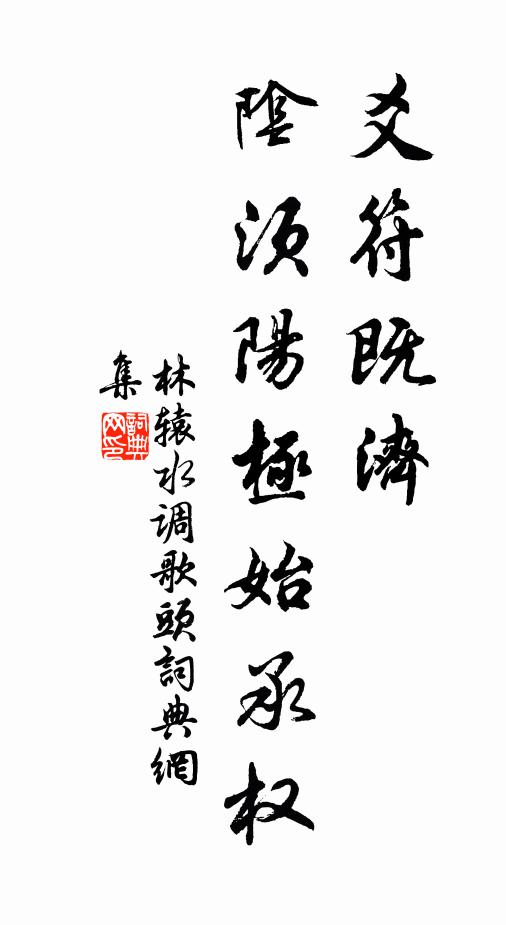 爻符既濟
陰須陽極始承权
林辕水调歌頭詞典網
集
詞典
网印